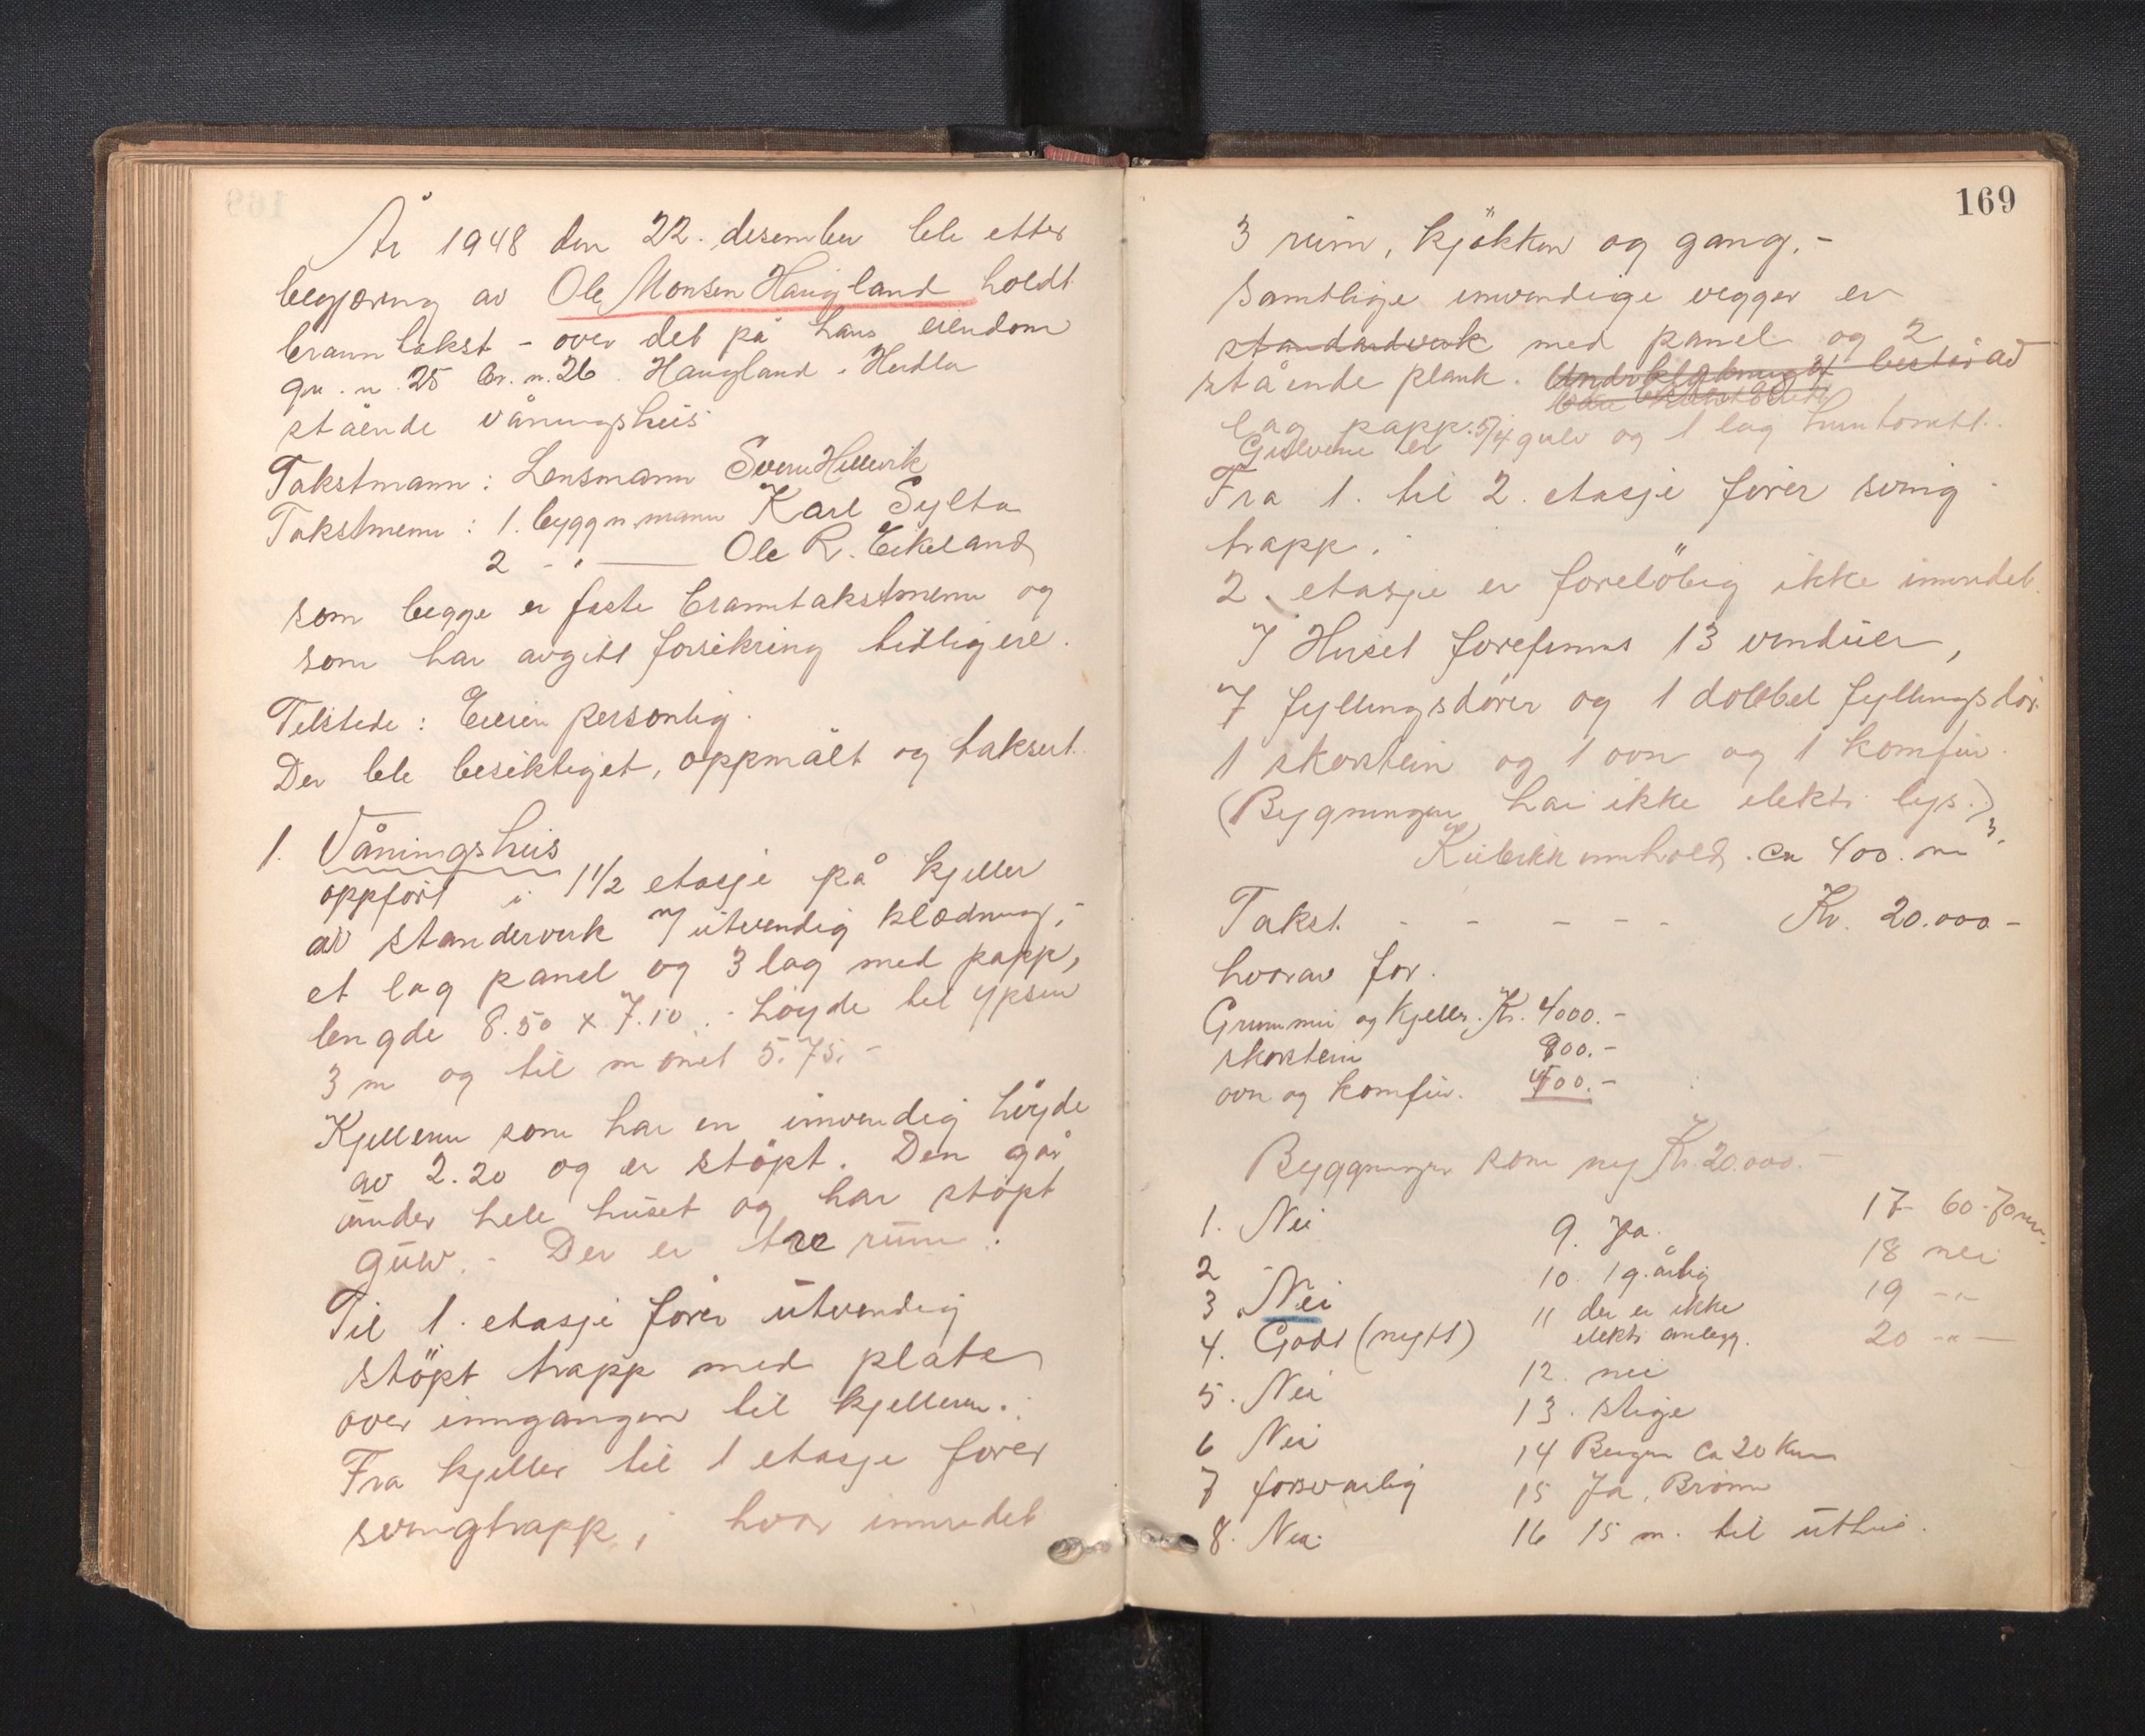 År 1948 den 22. desember ble etter
begjæring av Ole Monsen Haugland holdt
branntakst - over det på hans eiendom
gr. n. 25 br. n. 26. Haugland i Herdla
stående våningshus
Takstmann: Lensmann Sverre Hillevik
Takstmenn: 1. byggn.mann Karl Sylta
2 - " - Ole R. Eikeland
som begge er faste branntakstmenn og
som har avgitt forsikring tidligere.
Tilstede: Eieren personlig.
Der ble besiktiget, oppmålt og taksert.
1. Våningshus
oppført i 1 1/2 etasje på kjeller
av standerverk m/ utvendig klædning,-
et lag panel og 3 lag med papp,
lengde 8.50 x 7.10. - Høyde til ypsen
3 m og til mønet 5.75.-
Kjelleren som har en innvendig høyde
av 2.20 og er støpt. Den går
under hele huset og har støpt
gulv. - Der er tre rum.
Til 1. etasje fører utvendig
støpt trapp med plate
over inngangen til kjelleren.
Fra kjeller til 1 etasje fører
svingtrapp, hvor innredet
169
3 rum, kjøkken og gang.-
Samtlige innvendige vegger er
standardverk med panel og 2
stående plank. består av
lag papp.
Gulvene er 5/4 gulv og 1 lag
Fra 1. til 2. etasje fører sving
trapp.
2. etasje er foreløbig ikke innredet.
I Huset forefinnes 13 vinduer,
7 fyllingsdører og 1 dobbel fyllingsdør.
1 skorstein og 1 ovn og 1 komfur.
(Bygningen har ikke elektr. lys.)
Kubikkinnhold. ca 400. m3.
Takst. - - - - - Kr. 20.000 -
hvorav for.
Grunnmur og kjeller. Kr. 4000.-
skorstein 800.-
ovn og komfur. 400.-
Byggninger som ny Kr. 20.000.-
1. Nei
2 -
3 Nei
4. Godt (nytt)
5. Nei
6 Nei
7 forsvarlig
8. Nei.
9. Ja.
10. 1 g. årlig
11 der er ikke
elektr. anlegg.
12. nei
13. stige
14 Bergen ca 20 km
15 Ja, Brønn
16 15 m. til uthus.
17 60-70 m.
18 nei
19 - " -
20 - " -